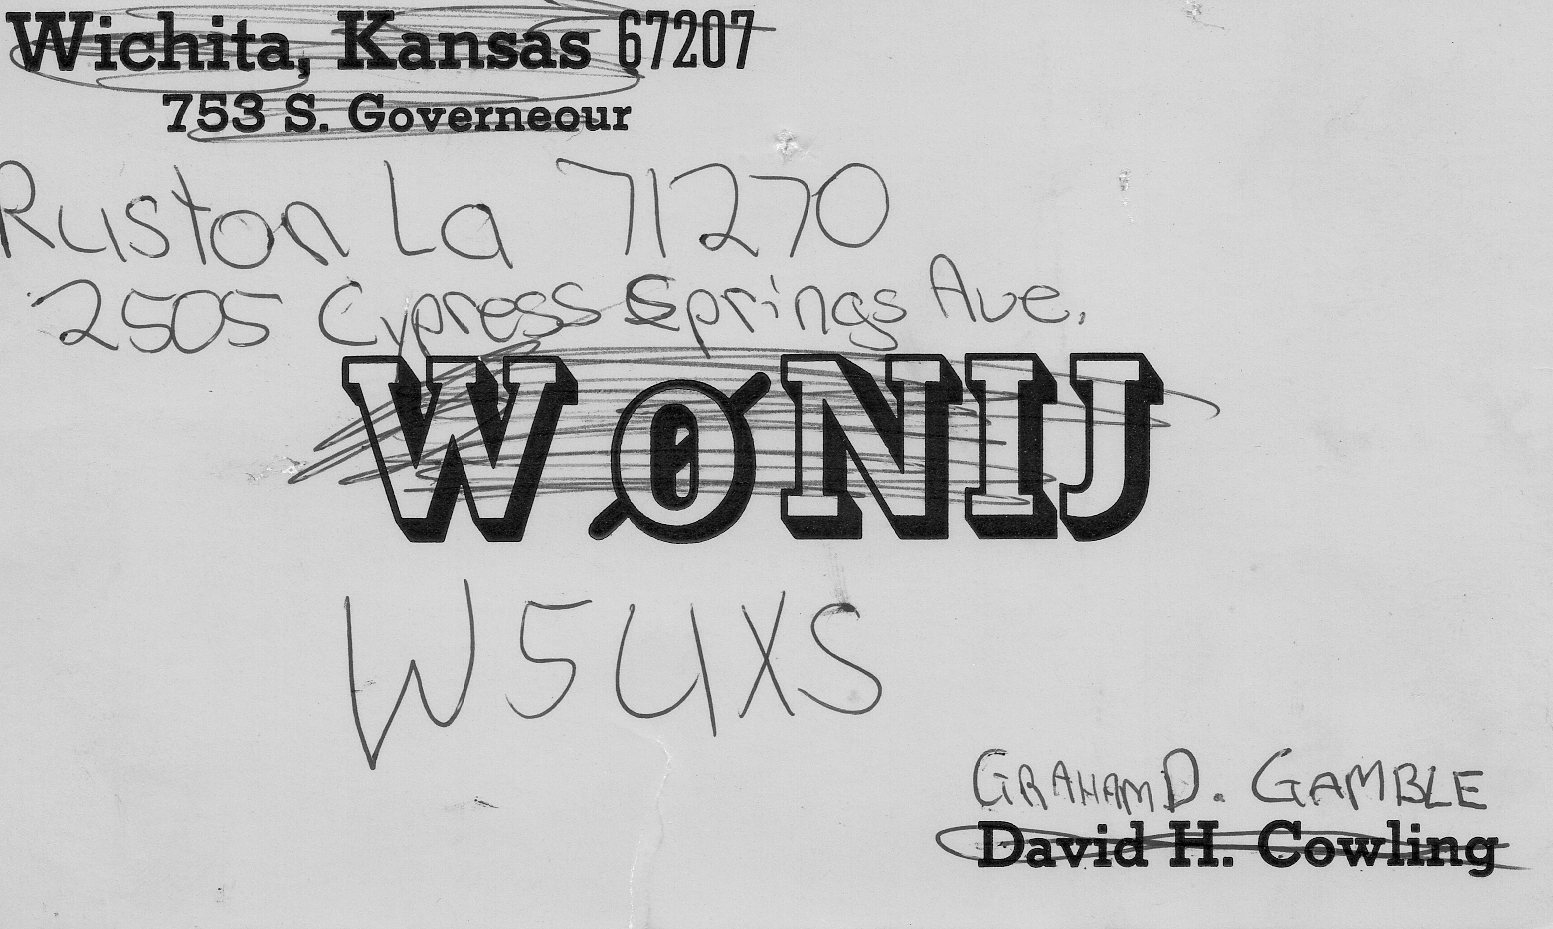 Wichita, Kansas 67207
753 S. Governeour
Ruston La 71270
2505 Cypress Springs Ave.
WØNIJ
W5UXS
GRAHAM D. GAMBLE
David H. Cowling